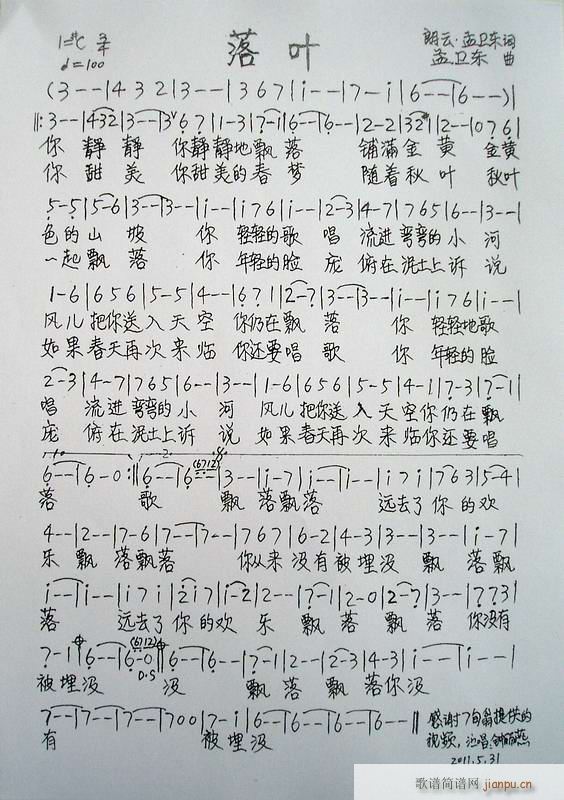 落 叶
1=♯C 3/4
♩=100
朗云·孟卫东 词
孟卫东 曲
(3 - - | 4 3 2 | 3 - - | 3 6 7 | i - - | 7 - i | 6 - - | 6 - - )|
‖: 3 - - | 4 3 2 | 3 - - | 3 6 7 | 1 - 3 | 7 - 1 | 6 - - | 6 - - | 2 - 2 | 3 2 1 | 2 - - | 0 7 6 |
你 静 静 你静静地飘落 铺满金黄 金黄
你 甜 美 你甜美的春梦 随着秋叶 秋叶
5 - 5 | 5 - 6 | 3 - - | 3 - - | i - - | i 7 6 | i - - | 2 - 3 | 4 - 7 | 7 6 5 | 6 - - | 3 - - |
色的山坡 你 轻轻的歌 唱 流进弯弯的小 河
一起飘落 你 年轻的脸 庞 俯在泥土上诉 说
1 - 6 | 6 5 6 | 5 - 5 | 4 - - | 6 7 1 | 2 - 7 | 3 - - | 3 - - | i - - | i 7 6 | i - - |
风儿把你送入天空 你仍在飘 落 你 轻轻地歌
如果春天再次来临 你还要唱 歌 你 年轻的脸
2 - 3 | 4 - 7 | 7 6 5 | 6 - - | 3 - - | 1 - 6 | 6 5 6 | 5 - 5 | 4 - 1 | 7 - 3 | 7 - 1 |
唱 流进弯弯的小 河 风儿把你送入天空你仍在飘
庞 俯在泥土上诉 说 如果春天再次来临你还要唱
6 - - | 6 - 0 :‖ 6 - - | 6 - - | 3 - - | i - 7 | i - - | i - - | i 7 i | 7 6 3 | 5 - 4 |
落 歌 飘 落飘落 远去了你的欢
4 - - | 2 - - | 7 - 6 | 7 - - | 7 - - | 7 6 7 | 6 - 2 | 4 - 3 | 3 - - | 3 - - | i - 7 |
乐 飘 落飘落 你从来没有被埋没 飘 落飘
i - - | i - - | i 7 i | 2 i 7 | i - 2 | 2 - - | 7 - 1 | 2 - 0 | 2 - 7 | 3 - - | 7 7 3 |
落 远去了你的欢 乐 飘 落 飘 落 你没有
7 - 1 | 6 - - | 6 - 0 ‖ 6 - - | 6 - - | 7 - 1 | 2 - - | 2 - 3 | 4 - 3 | i - - | i - - |
(6712)
D.S
被埋没 没 飘 落 飘 落你没
7 - - | 7 - - | 7 - - | 7 0 0 | 7 - i | 6 - - | 6 - - | 6 - - | 6 - - ‖
有 被埋没
感谢7旬翁提供的
视频,
2011.5.31
歌谱简谱网
jianpu.cn